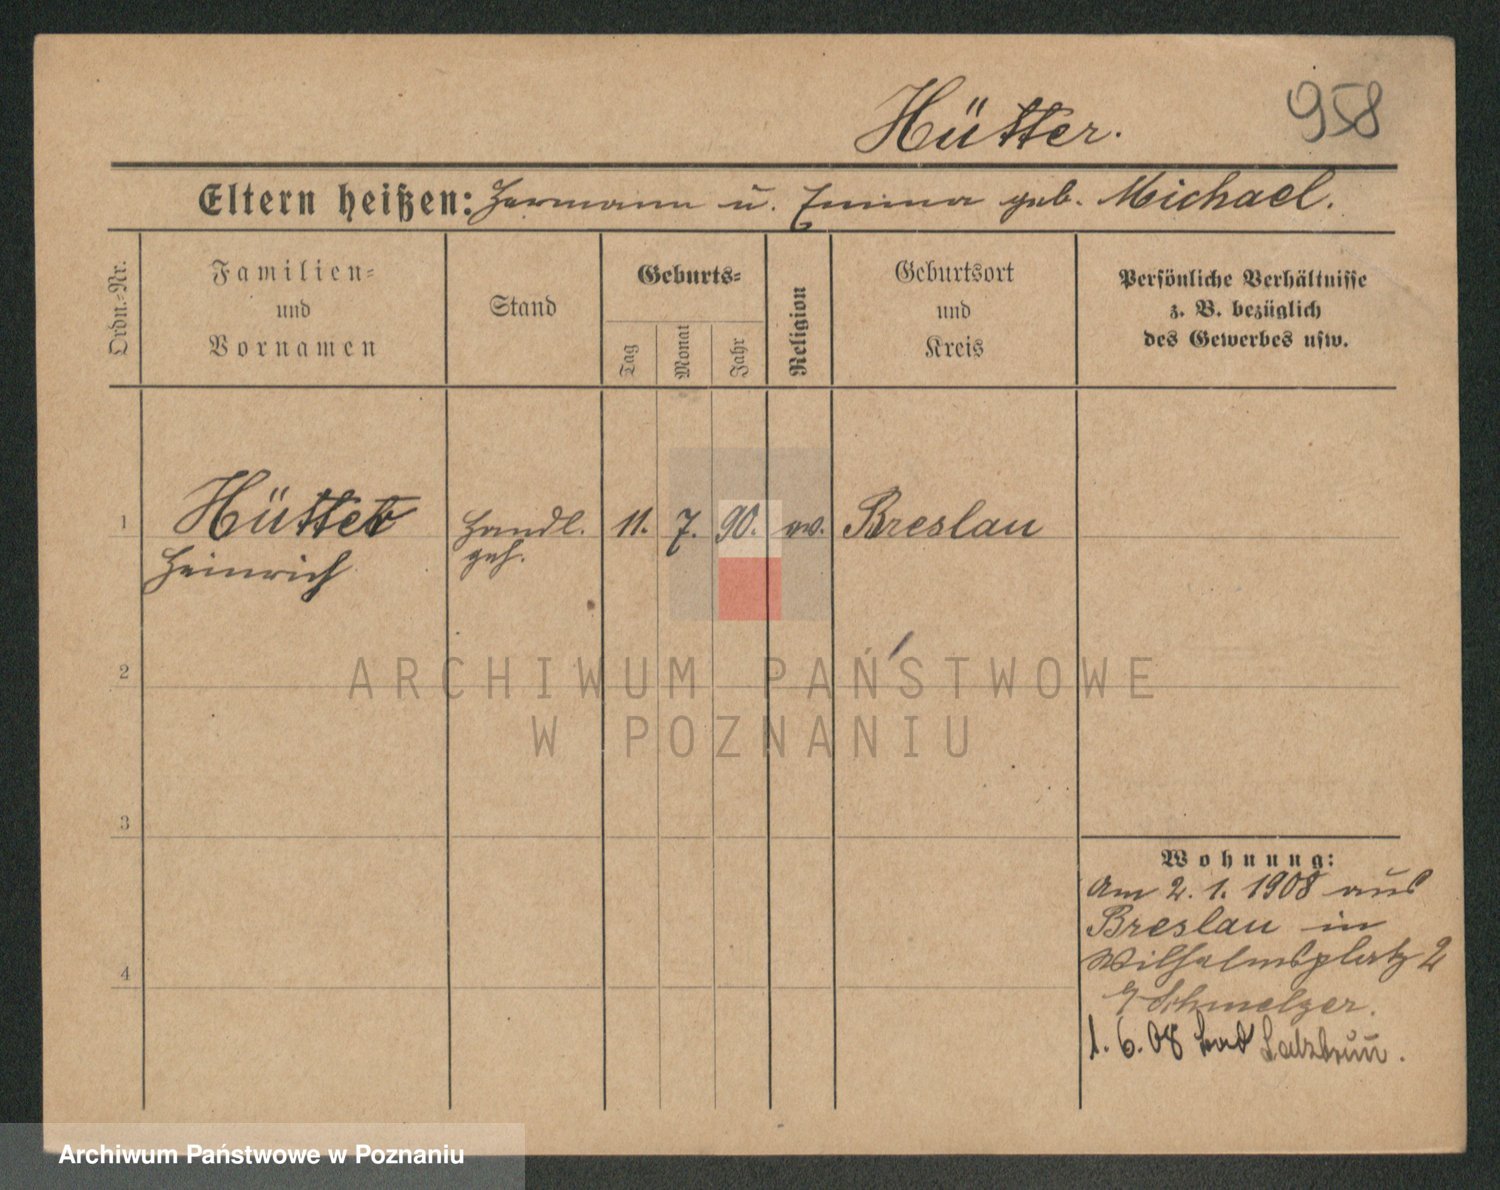 Hütter.
958
Eltern heißen: Hermann u. Emma geb. Michael.
Ordn.-Nr.
Familien-
und
Vornamen
Stand
Geburts-
Tag
Monat
Jahr
Religion
Geburtsort
und
Kreis
Persönliche Verhältnisse
z. B. bezüglich
des Gewerbes usw.
1
Hütter
Heinrich
Handl.
geh.
11.
7.
90.
ev.
Breslau
2
3
4
ARCHIWUM PAŃSTWOWE
W POZNANIU
Wohnung:
Am 2. 1. 1908 aus
Breslau in
Wilhelmsplatz 2
Schmelzer.
1. 6. 08 Bad Salzbrunn.
Archiwum Państwowe w Poznaniu